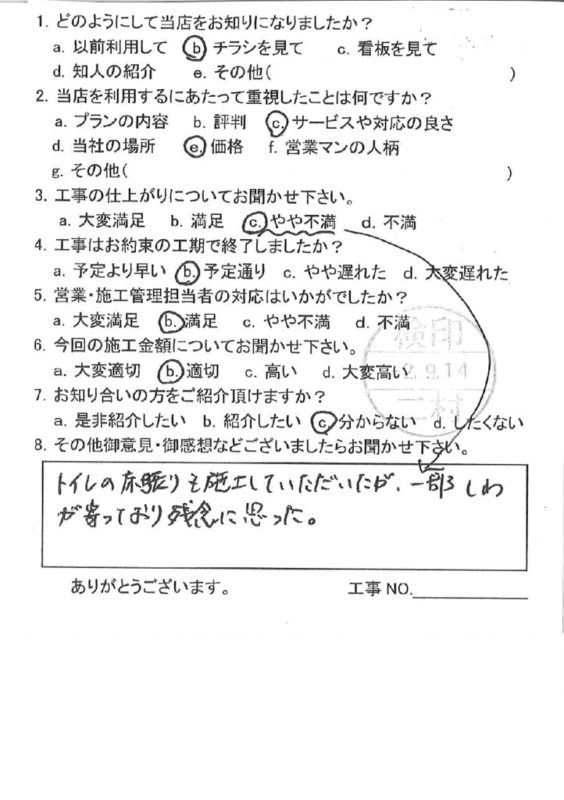 1. どのようにして当店をお知りになりましたか？
a. 以前利用して　b. チラシを見て　c. 看板を見て
d. 知人の紹介　e. その他(　)
2. 当店を利用するにあたって重視したことは何ですか？
a. プランの内容　b. 評判　c. サービスや対応の良さ
d. 当社の場所　e. 価格　f. 営業マンの人柄
g. その他(　)
3. 工事の仕上がりについてお聞かせ下さい。
a. 大変満足　b. 満足　c. やや不満　d. 不満
4. 工事はお約束の工期で終了しましたか？
a. 予定より早い　b. 予定通り　c. やや遅れた　d. 大変遅れた
5. 営業・施工管理担当者の対応はいかがでしたか？
a. 大変満足　b. 満足　c. やや不満　d. 不満
検印
6. 今回の施工金額についてお聞かせ下さい。
a. 大変適切　b. 適切　c. 高い　d. 大変高い
2.9.14
7. お知り合いの方をご紹介頂けますか？
a. 是非紹介したい　b. 紹介したい　c. 分からない　d. したくない
三村
8. その他御意見・御感想などございましたらお聞かせ下さい。
トイレの床張りも施工していただいたが、一部しわ
が寄っており残念に思った。
ありがとうございます。　工事 NO.